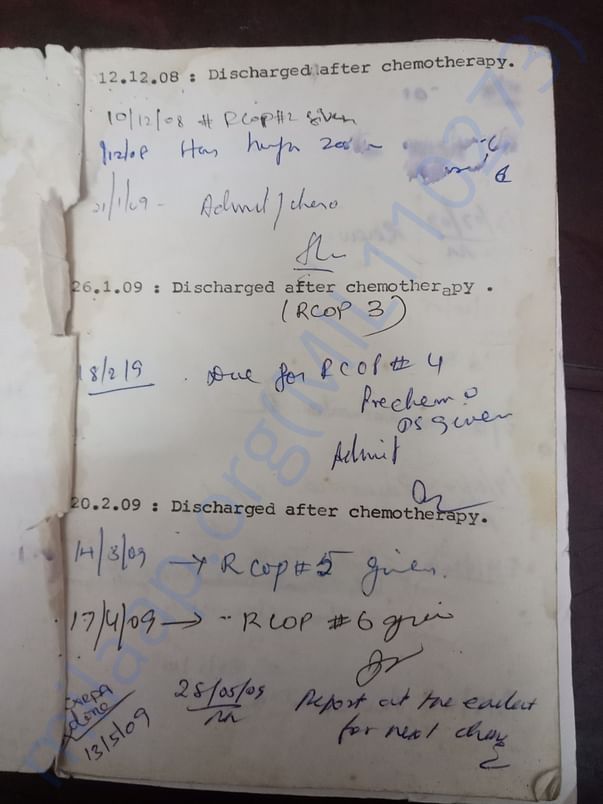 12.12.08 : Discharged after chemotherapy.
10/12/08 # RCOP#2 given
21/1/09 - Admit / chemo
26.1.09 : Discharged after chemotherapy .
(RCOP 3)
18/2/9 . Due for RCOP # 4
Prechem
given
Admit
20.2.09 : Discharged after chemotherapy.
14/3/09 → RCOP #5 given.
17/4/09 → RCOP #6 given
13/5/09
28/05/09 Report at the earliest
for next chemo
milaap.org(MIL1110273)